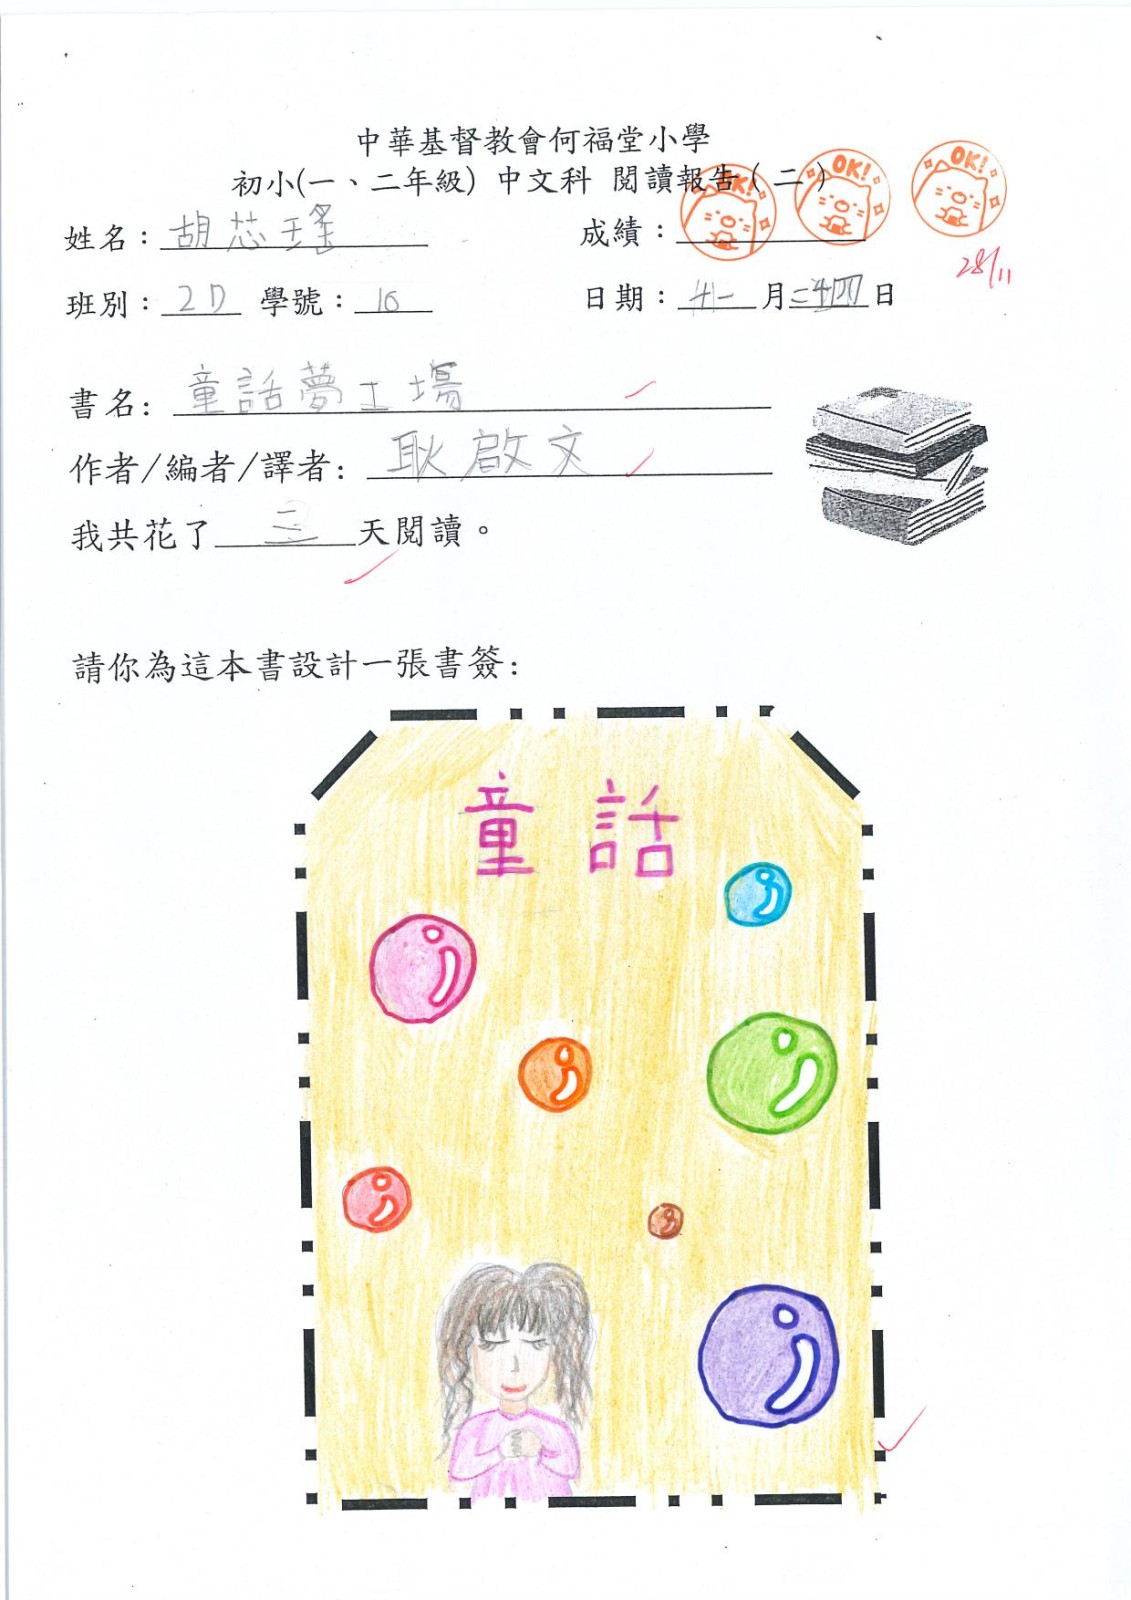 中華基督教會何福堂小學
初小(一、二年級) 中文科 閱讀報告(二)
姓名：胡芯瑤 成績：OK! OK! OK!
28/11
班別：2D 學號：16 日期：十一月二十四日
書名：童話夢工場
作者/編者/譯者：耿啟文
我共花了三天閱讀。
請你為這本書設計一張書簽：
童話